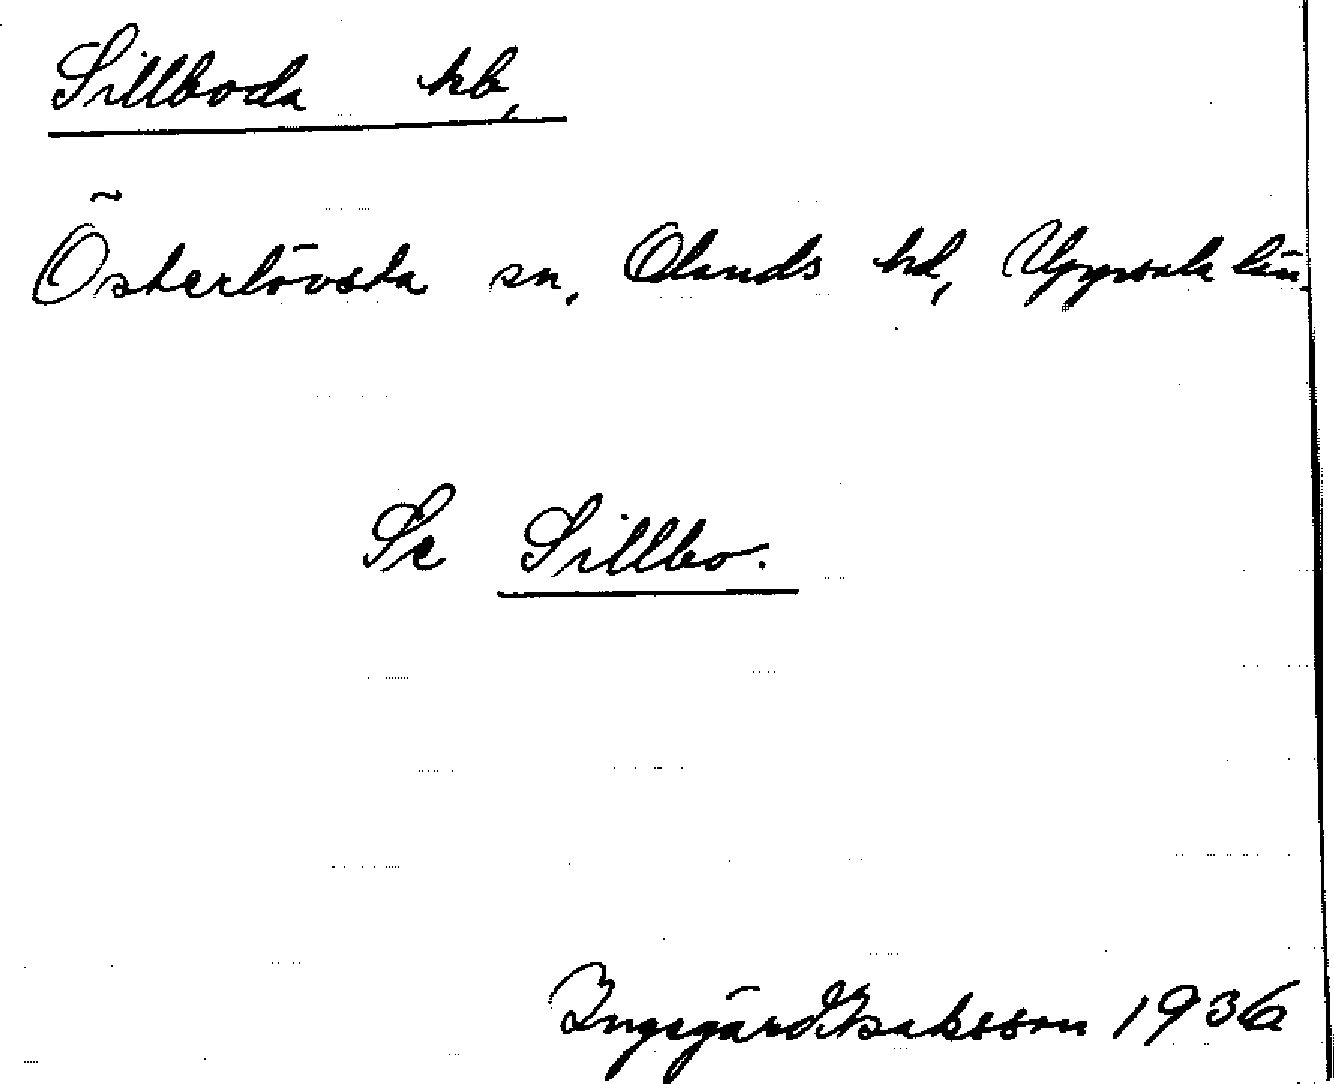 Sillboda hb,
Österlövsta sn, Olands hd, Uppsala län.
Se Sillbo.
Ingegärd Isaksson 1936